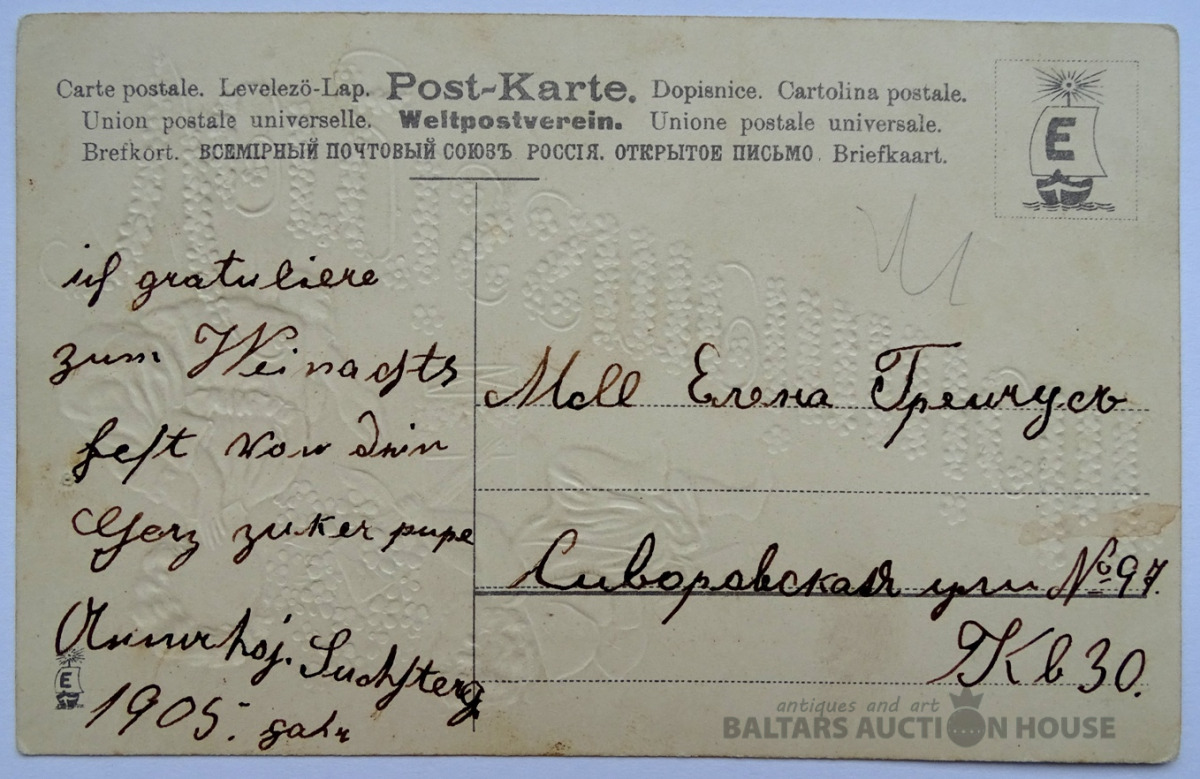 Carte postale. Levelező-Lap. Post-Karte. Dopisnice. Cartolina postale.
Union postale universelle. Weltpostverein. Unione postale universale.
Brefkort. ВСЕМІРНЫЙ ПОЧТОВЫЙ СОЮЗЪ РОССІЯ. ОТКРЫТОЕ ПИСЬМО. Briefkaart.
E
ich gratuliere
zum Weinachts
fest von dein
Herz zuker pupe
1905. Jahr
E
Mell Елена
No 97.
Кв 30.
antiques and art
BALTARS AUCTION HOUSE